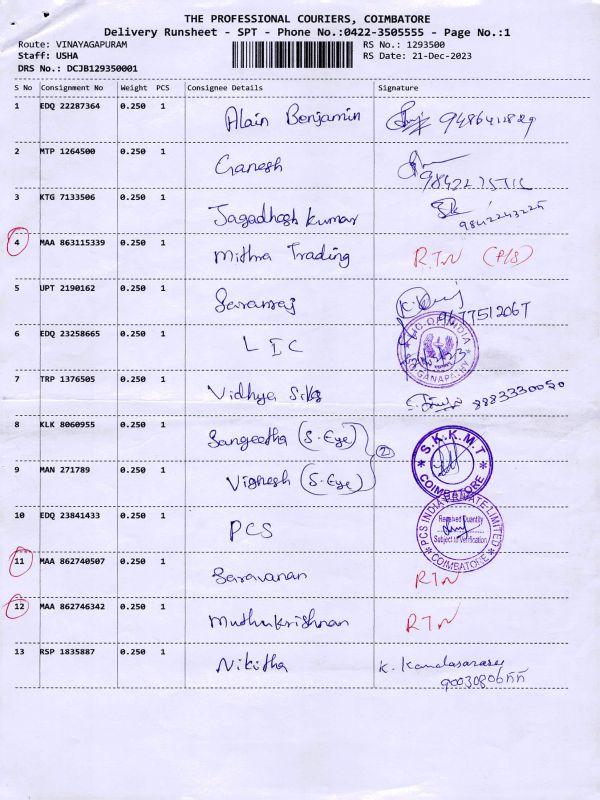 THE PROFESSIONAL COURIERS, COIMBATORE
Delivery Runsheet - SPT - Phone No.:0422-3505555 - Page No.:1
Route: VINAYAGAPURAM RS No.: 1293500
Staff: USHA RS Date: 21-Dec-2023
DRS No.: DCJB129350001
S No Consignment No Weight PCS Consignee Details Signature
1 EDQ 22287364 0.250 1 Alain Benjamin
2 MTP 1264500 0.250 1 Ganesh
3 KTG 7133506 0.250 1 Jagadhesh kumar
9842243225
4 MAA 863115339 0.250 1 Mithra Trading RTN (P/S)
5 UPT 2190162 0.250 1 Saranraj
9677512067
6 EDQ 23258665 0.250 1 LIC
LIC OF INDIA
GANAPATHY
7 TRP 1376505 0.250 1 Vidhya Silks 8883330050
8 KLK 8060955 0.250 1 Sangeetha (S.Eye)
S.K.K.M.T
COIMBATORE
2
9 MAN 271789 0.250 1 Vignesh (S.Eye)
10 EDQ 23841433 0.250 1 PCS
PCS INDIA PRIVATE LIMITED
Received Quantity
Subject to Verification
COIMBATORE
11 MAA 862740507 0.250 1 Saravanan RTN
12 MAA 862746342 0.250 1 Muthukrishnan RTN
13 RSP 1835887 0.250 1 Nikitha K.